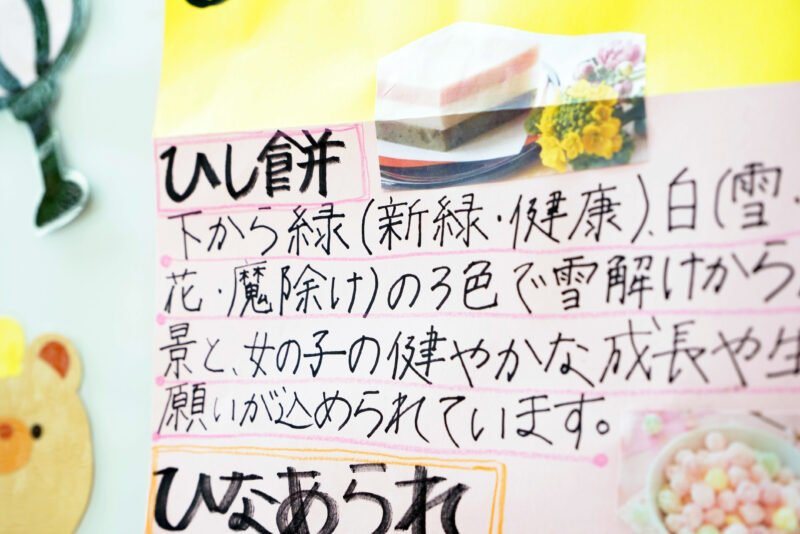 ひし餅
下から緑(新緑・健康)、白(雪・
花・魔除け)の3色で雪解けから
景と、女の子の健やかな成長や生
願いが込められています。
ひなあられ